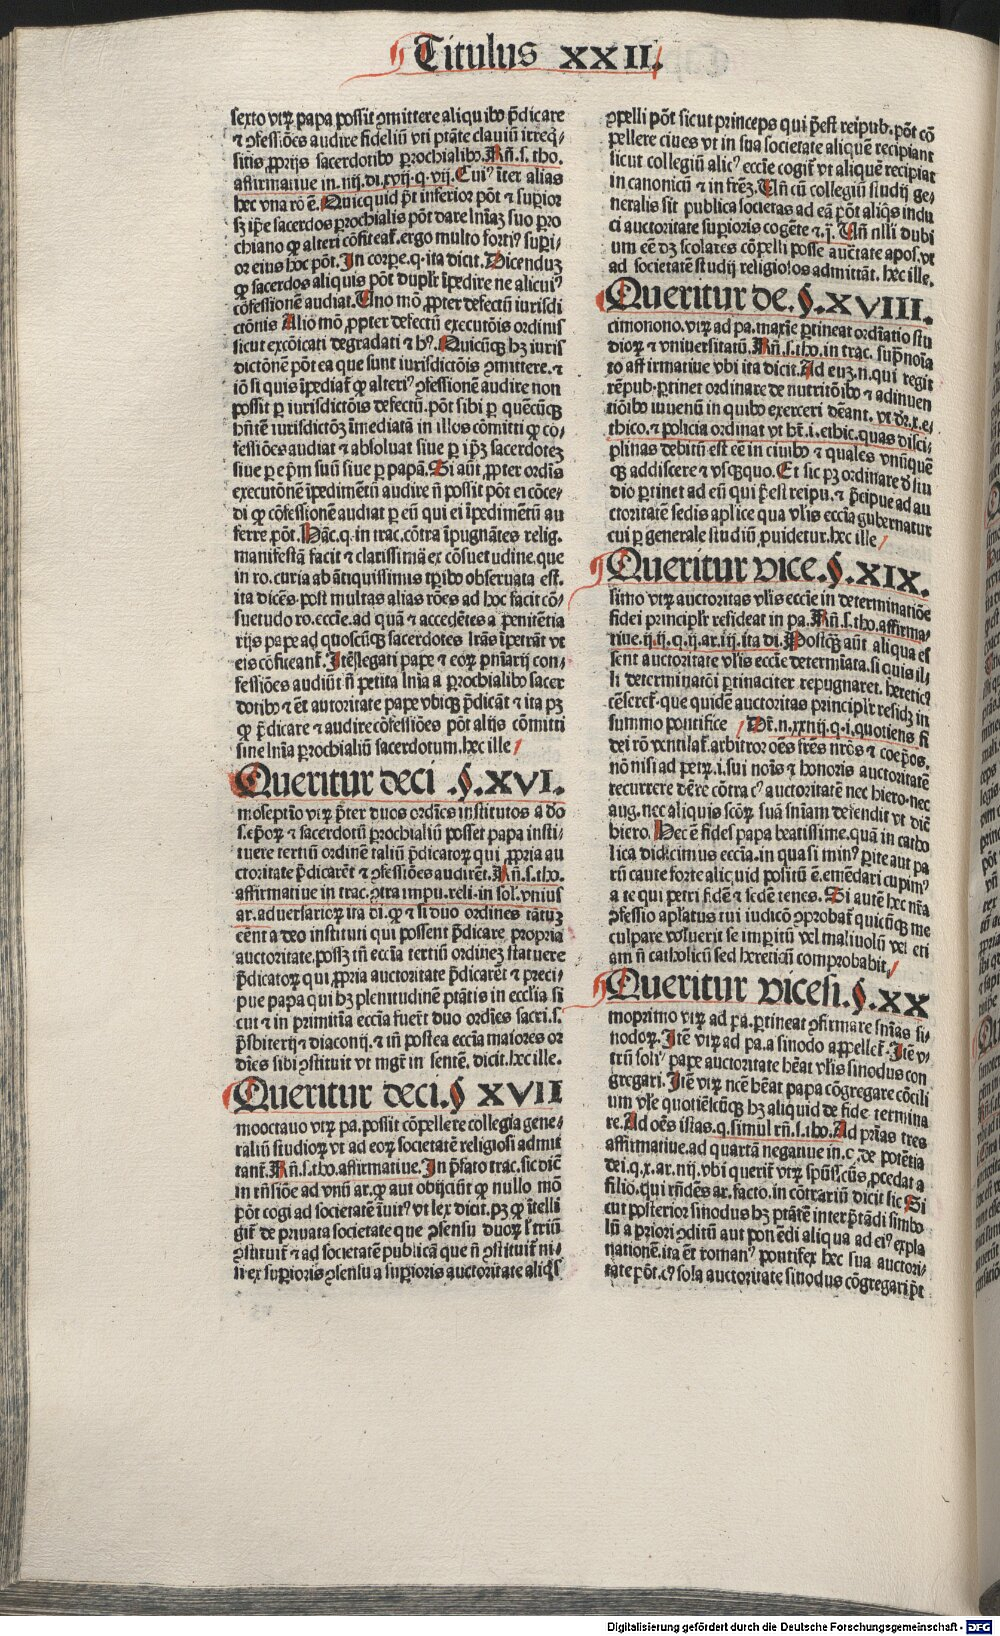 Titulus XXII.
sexto vtrꝝ papa possit ꝯmittere aliquibꝰ p̄dicare
⁊ ꝯfessiōes audire fideliū vti ptāte clauiū irreq̇-
sitis ꝓprijs sacerdotibꝰ ꝑrochialibꝰ. Rn̄. s. tho.
affirmatiue in. iiij. di. xvij. q. vij. Cuiꝰ īter alias
hec vna rō ē. Quicquid p̄t inferior pōt ⁊ suꝑior
sꝫ ip̄e sacerdos ꝑrochialis pōt dare lnīaꝫ suo ꝑro
chiano ꝙ alteri cōfiteat᷑. ergo multo fortiꝰ suꝑi-
or eius hoc pōt. In corpe. q. ita dicit. Dicenduꝫ
ꝙ sacerdos aliquis pōt dupl'r īpedire ne alicuiꝰ
cōfessionē audiat. Uno mō ꝓpter defectū iurisdi
ctōnis Alio mō ꝓpter defectū executōis ordinis
sicut excōicati degradati ⁊ hꝰ. Quicūqꝫ hꝫ iuris
dictōnē pōt ea que sunt iurisdictōis ꝯmittere. ⁊
iō si quis īpediat᷑ ꝙ alteriꝰ ꝯfessionē audire non
possit ꝑ iurisdictōis defectū. pōt sibi ꝑ quēcūqꝫ
hn̄tē iurisdictōꝫ īmediatā in illos cōmitti ꝙ cō-
fessiōes audiat ⁊ absoluat siue ꝑ ip̄ꝫ sacerdoteꝫ
siue ꝑ ep̄m suū siue ꝑ papā. Si aūt ꝓpter ordīs
executōnē īpedimētū audire n̄ possit pōt ei cōce-
di ꝙ cōfessionē audiat ꝑ eū qui ei īpedimētū au
ferre pōt. Hāc. q. in trac. cōtra īpugnātes relig.
manifestā facit ⁊ clarissimā ex cōsuetudine. que
in ro. curia ab ātiquissimis tp̄ibꝰ obseruata est.
ita dicēs. post multas alias rōes ad hoc facit cō-
suetudo ro. eccīe. ad quā ⁊ accedētes a penitētia
rijs pape ad quoscūqꝫ sacerdotes lrās īpetrāt vt
eis cōfiteant᷑. Itē legati pape ⁊ eoꝝ pnīarij con-
fessiōes audiūt n̄ petita lnīa a ꝑrochialibꝰ sacer
dotibꝰ ⁊ ēt autoritate pape vbiqꝫ p̄dicāt ⁊ ita pꝫ
ꝙ p̄dicare ⁊ audire cōfessiōes pōt alijs cōmitti
sine lnīa ꝑrochialiū sacerdotum. hec ille
Queritur deci .§. XVI.
moseptīo vtrꝝ p̄ter duos ordīes institutos a do
s. ep̄oꝝ ⁊ sacerdotū ꝑrochialiū posset papa insti-
tuere tertiū ordinē taliū p̄dicatoꝝ qui ꝓpria au
ctoritate p̄dicarēt ⁊ ꝯfessiōes audirēt. Rn̄. s. tho.
affirmatiue in trac. ꝯtra impu. reli. in sol'. vnius
ar. aduersarioꝝ ita di. ꝙ ⁊ si duo ordines tātuꝫ
eēnt a deo instituti qui possent p̄dicare propria
auctoritate. possꝫ tn̄ eccīa tertiū ordineꝫ statuere
p̄dicatoꝝ qui ꝓpria auctoritate p̄dicarēt ⁊ preci-
pue papa qui hꝫ plenitudinē ptātis in ecclīa si
cut ⁊ in primitīa eccīa fuer̄t duo ordīes sacri. s.
p̄sbiterij ⁊ diaconij. ⁊ tn̄ postea eccīa maiores or
dīes sibi ꝯstituit vt mgr̄ in sentē. dicit. hec ille.
Queritur deci. § XVII
mooctauo vtrꝝ pa. possit cōpellere collegia gene-
raliū studioꝝ vt ad eoꝝ societatē religiosi admit
tant᷑. Rn̄. s. tho. affirmatiue. In p̄fato trac. sic dīc̄
in rn̄siōe ad vnū ar. ꝙ aut obijciūt ꝙ nullo mō
pōt cogi ad societatē īuitꝰ vt lex dicit. pꝫ ꝙ ītelli
git᷑ de priuata societate que ꝯsensu duoꝝ l' triū
ꝯstituit᷑ ⁊ ad societatē publicā que n̄ ꝯstituit᷑ ni-
si ex suꝑioris ꝯsensu a suꝑioris auctoritate aliq̇s
ꝯpelli pōt sicut princeps qui p̄est reipub. pōt cō
pellere ciues vt in sua societate aliquē recipiant
sicut collegiū alicꝰ eccīe cogit᷑ vt aliquē recipiat
in canonicū ⁊ in fr̄eꝫ. Un̄ cū collegiū studij ge-
neralis sit publica societas ad eā pōt aliq̇s indu
ci auctoritate suꝑioris cogēte ⁊. ꝗ. Un̄ nlli dubi
um eē dꝫ scolares cōpelli posse auctate apos. vt
ad societatē studij religiosos admittāt. hec ille.
Queritur de. §. XVIII.
cimonono. vtrꝝ ad pa. maxīe ꝑtineat ordīatio stu
dioꝝ ⁊ vniuersitatū. Rn̄. s. tho. in trac. sup̄noīa
to affirmatiue vbi ita dicit. Ad euꝫ. n. qui regit
rēpub. ꝑtinet ordinare de nutritōibꝰ ⁊ adinuen
tiōibꝰ iuuenū in quibꝰ exerceri dēant. vt dr̄. x. e-
thico. ⁊ policia ordinat vt hr̄. i. ethic. quas disci-
plinas debitū est eē in ciuibꝰ ⁊ quales vnūquē
qꝫ addiscere ⁊ vsqꝫquo. Et sic pꝫ ordinare ď stu
dio ꝑtinet ad eū qui p̄est reipu. ⁊ p̄cipue ad au
ctoritatē sedis aplice qua vlis eccīa gubernatur
cui ꝑ generale studiū ꝓuidetur. hec ille
Queritur vice. §. XIX.
simo vtrꝝ auctoritas vlis eccīe in determinatiōe
fidei principl'r resideat in pa. Rn̄. s. tho. affirma-
tiue. ij. ij. q. ij. ar. iij. ita di. Postqꝫ aūt aliqua es
sent auctoritate vlis eccīe determīata. si quis il-
li determinatōi ꝑtinaciter repugnaret. hereticꝰ
cēseret᷑. que quidē auctoritas principl'r residꝫ in
summo pontifice Dr̄. n. xxiiij. q. i. quotiens fi
dei rō ventilat᷑. arbitror oēs fr̄es nrōs ⁊ coep̄os.
nō nisi ad petꝝ. i. sui noīs ⁊ honoris auctoritatē
recurrere dēre cōtra cꝰ auctoritatē nec hiero. nec
aug. nec aliquis scōꝝ suā snīam defendit vt dic̄
hiero. Hec ē fides papa beatissime. quā in catho
lica didicimus eccīa. in qua si minꝰ ꝑite aut pa
rū caute forte aliquid positū ē. emēdari cupimꝰ
a te qui petri fidē ⁊ sedē tenes. Si autē hec nr̄a
ꝯfessio ap̄latus tui iudicō ꝯprobat᷑ quicūqꝫ me
culpare voluerit se imꝑitū vel maliuolū vel eti
am n̄ catholicū sed hereticū comprobabit.
Queritur vicesi. §. XX
moprimo vtrꝝ ad pa. ꝑtineat ꝯfirmare snīas si-
nodoꝝ. Itē vtrꝝ ad pa. a sinodo appellet᷑. Itē v-
trū soliꝰ pape auctoritate hēat vlis sinodus con
gregari. Itē vtrꝝ ncē hēat papa cōgregare cōcili
um vlē quotiēscūqꝫ hꝫ aliquid de fide termina
re. Ad oēs istas. q. simul rn̄. s. tho. Ad prias tres
affirmatiue. ad quartā negatiue in. c. de potētia
dei. q. x. ar. iiij. vbi querit᷑ vtrꝝ spūs scūs ꝓcedat a
filio. qui rn̄dēs ar. facto. in cōtrariū dicit sic Si
cut posterior sinodus hꝫ ptātē interp̄tādi simbo
lū a priori ꝯditū aut ponēdi aliqua ad eiꝰ expla
nationē. ita ēt romanꝰ pontifex hec sua auctori-
tate pōt. cꝰ sola auctoritate sinodus cōgregari p̄t
Digitalisierung gefördert durch die Deutsche Forschungsgemeinschaft - DFG